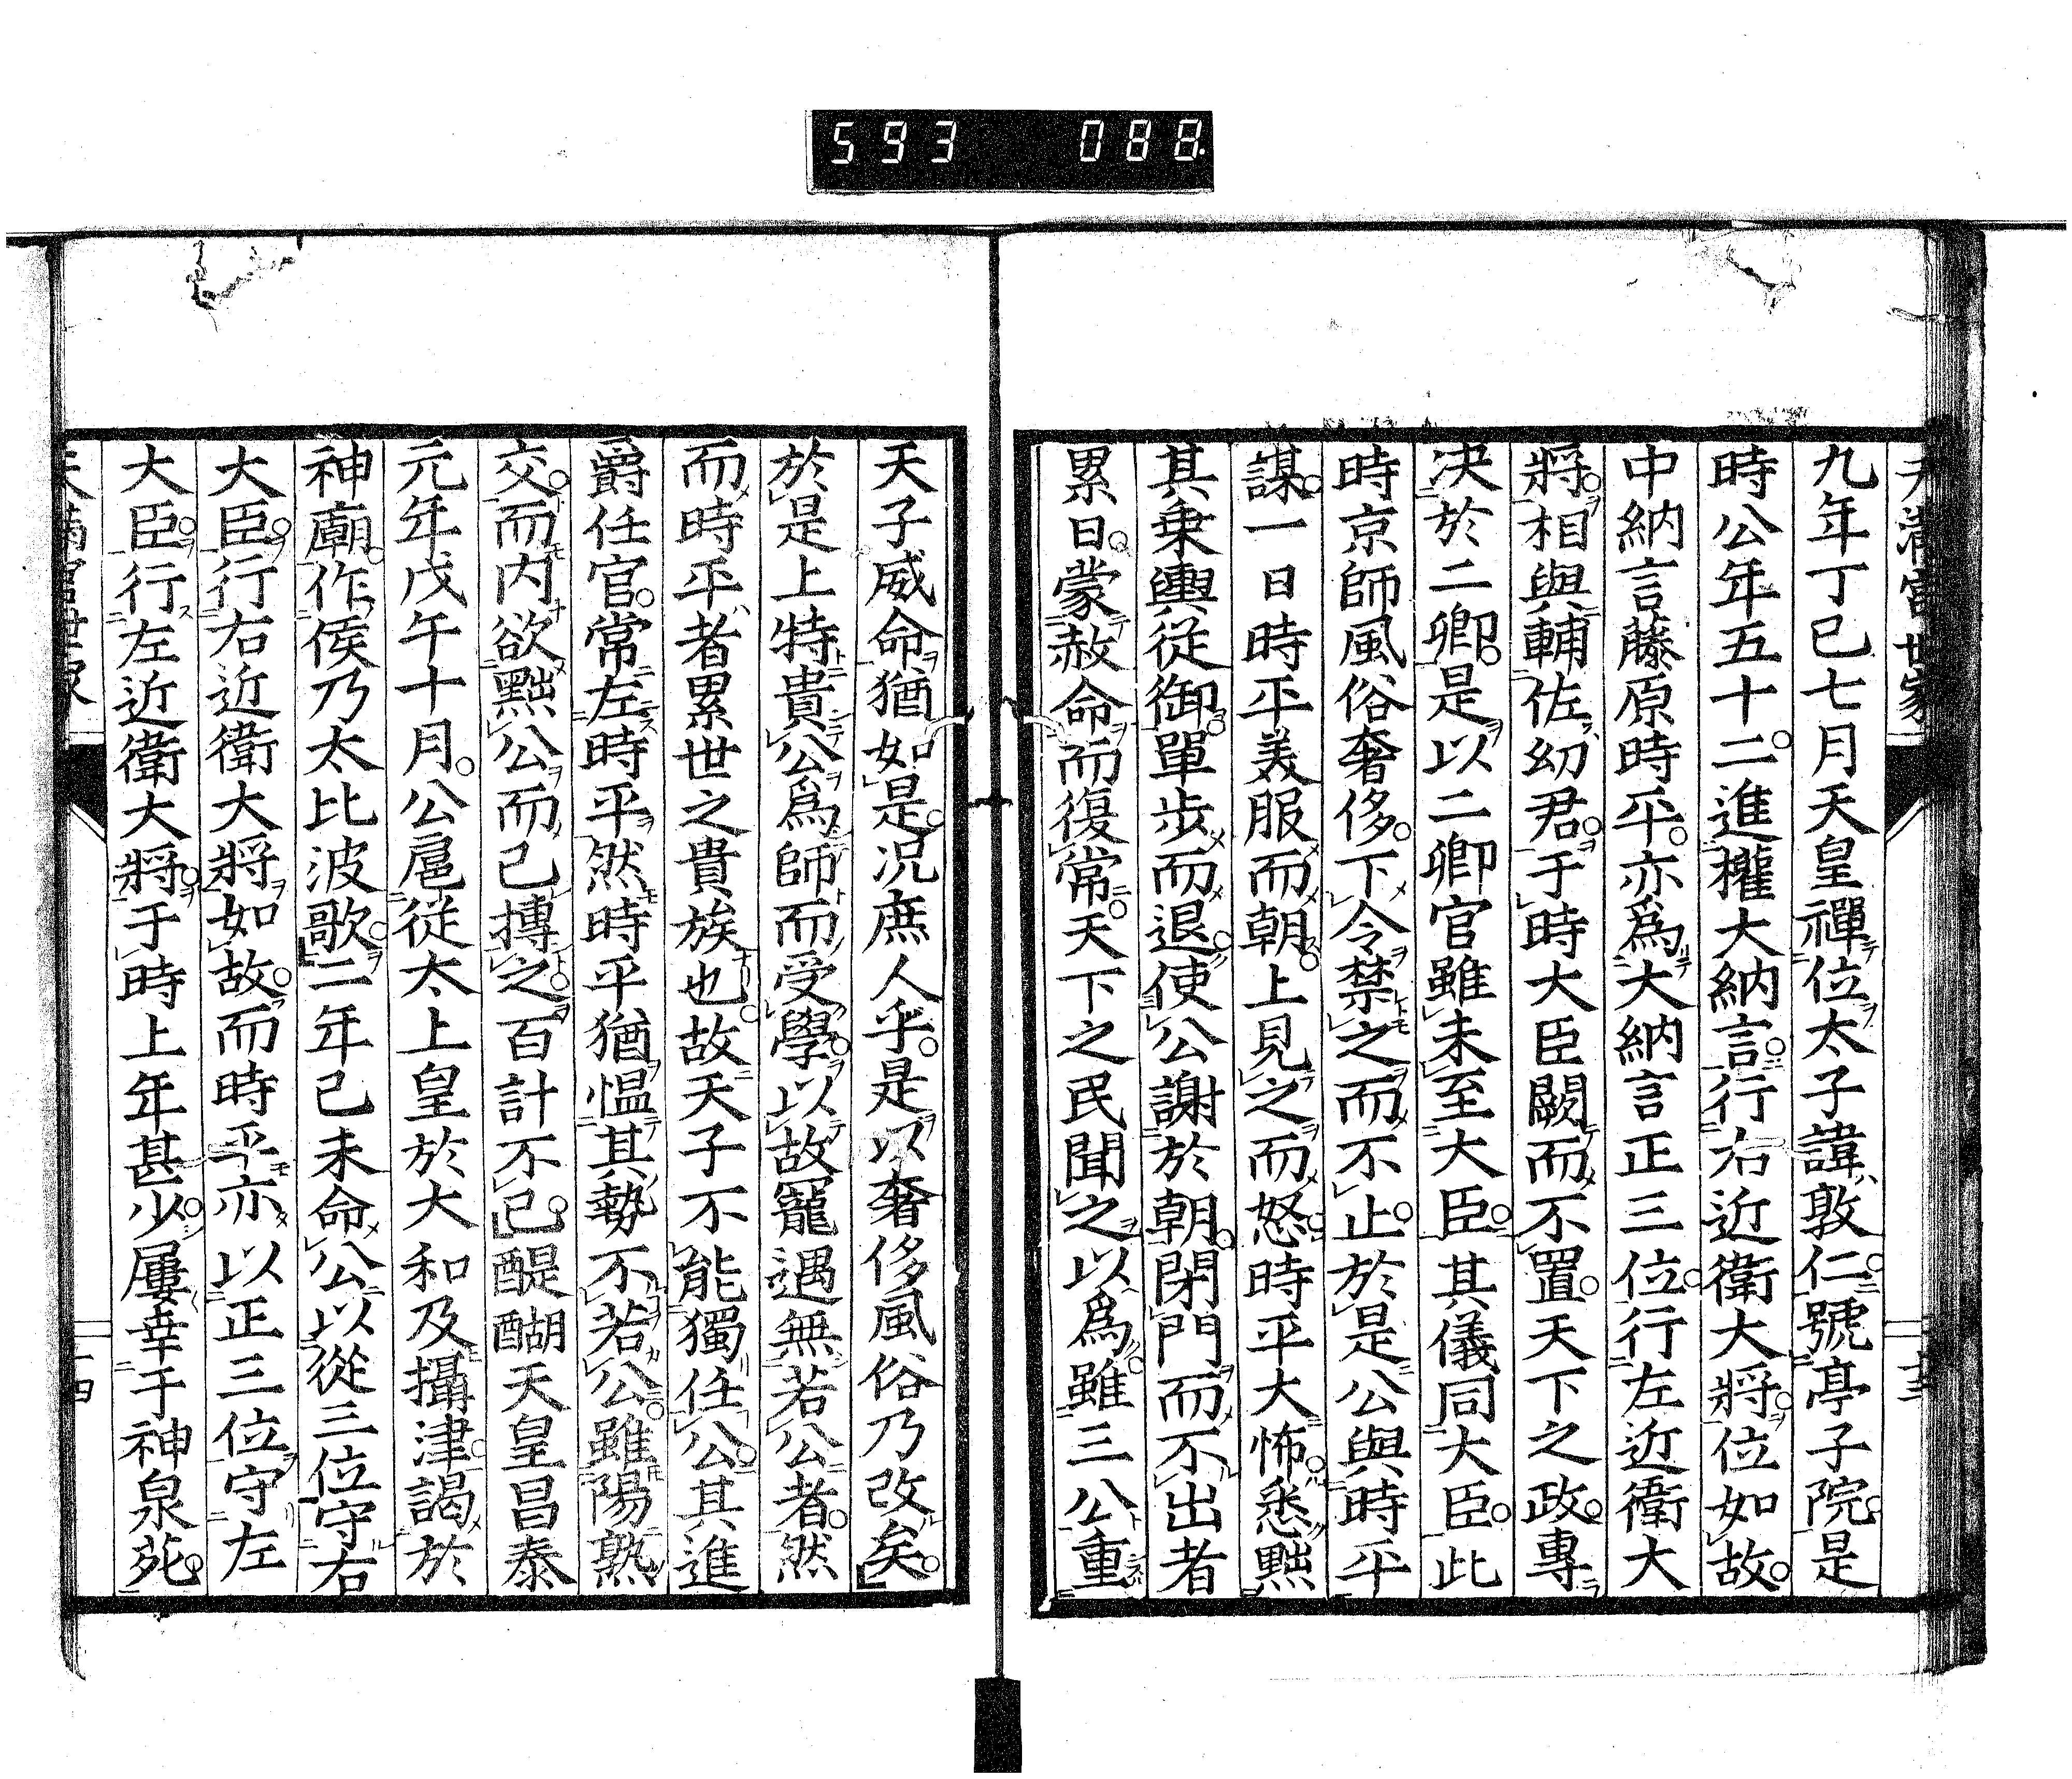 593 088
天滿宮世家 十三
九年丁巳七月天皇禪位太子諱敦仁號亭子院是
時公年五十二進權大納言行右近衛大將位如故
中納言藤原時平亦爲大納言正三位行左近衛大
將相與輔佐幼君于時大臣闕而不置天下之政專
决於二卿是以二卿官雖未至大臣其儀同大臣此
時京師風俗奢侈下令禁之而不止於是公與時平
謀一日時平美服而朝上見之而怒時平大怖悉黜
其乗輿從御單步而退使公謝於朝閉門而不出者
累日蒙赦命而復常天下之民聞之以爲雖三公重
天子威命猶如是况庶人乎是以奢侈風俗乃改矣
於是上特貴公爲師而受學以故寵遇無若公者然
而時平者累世之貴族也故天子不能獨任公其進
爵任官常左時平然時平猶慍其勢不若公雖陽熟
交而内欲黜公而己摶之百計不已醍醐天皇昌泰
元年戊午十月公扈從太上皇於大和及攝津謁於
神廟作倭乃太比波歌二年己未命公以從三位守右
大臣行右近衛大將如故而時平亦以正三位守左
大臣行左近衛大將于時上年甚少屢幸于神泉苑
天滿宮世家 十四